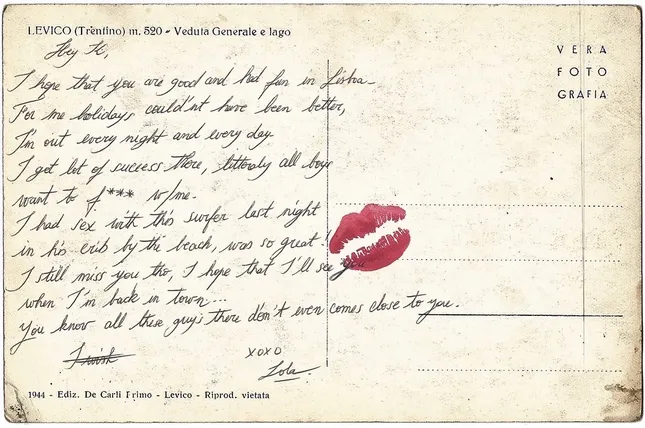 LEVICO (Trentino) m. 520 - Veduta Generale e lago
VERA
FOTO
GRAFIA
Hey K,
I hope that you are good and had fun in Lisboa
For me holidays could'nt have been better,
I'm out every night and every day
I got lot of success there, litteraly all boys
want to f*** w/me.
I had sex with this surfer last night
in his crib by the beach, was so great!
I still miss you tho, I hope that I'll see you
when I'm back in town...
You know all these guys there don't even comes close to you.
I wish
xoxo
Lola
1944 - Ediz. De Carli Primo - Levico - Riprod. vietata